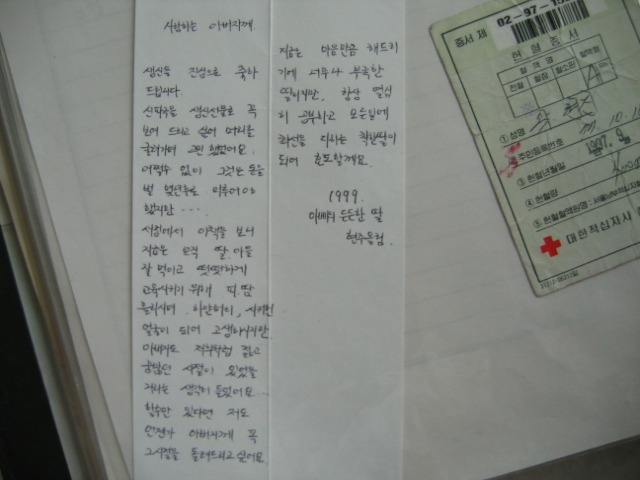 사랑하는 아버지께
생신을 진심으로 축하
드립니다.
생신선물로 꼭
보여 드리고 싶어 머리를
굴려가며 고민 했었어요.
어쩔수 없이 그것은 돈을
벌 몇년후로 미루어야
했지만 ....
시집에서 이적을 보니
지금은 오직 딸.아들
잘 먹이고 떳떳하게
교육시키기 위해 피.땀
흘리시며 하얀머리,
얼굴이 되어 고생하시지만
아빠도 저희처럼 젊고
시절이 있었을
거라는 생각이 들었어요...
할수만 있다면 저도
언젠가 아버지께 꼭
그시절을 돌려드리고 싶어요.
지금은 마음만큼 해드리
기에 너무나 부족한
딸이지만, 항상 열심
히 공부하고 모든일에
최선을 다하는 착한딸이
되어 효도할게요.
1999.
아빠의 든든한 딸
현주올림.
증서 제 02-97-
헌혈증서
혈액명
전혈 혈장 혈소판 혈액형
A
① 성명
② 주민등록번호
③ 헌혈년월일 1997. 9
④ 헌혈량
⑤ 헌혈혈액원명:
대한적십자사